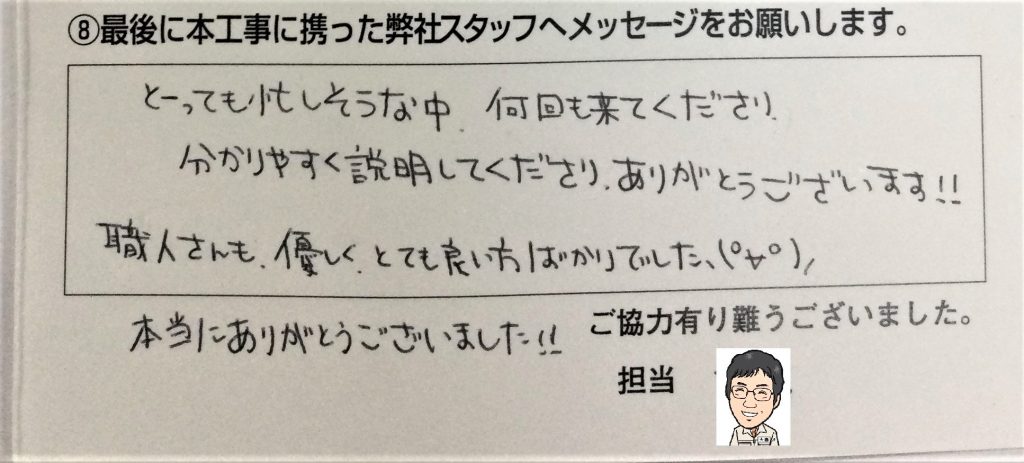 ⑧最後に本工事に携った弊社スタッフへメッセージをお願いします。
とーっても忙しそうな中、何回も来てくださり
分かりやすく説明してくださり、ありがとうございます!!
職人さんも、優しく、とても良い方ばかりでした、(°∀°)/
本当にありがとうございました!!
ご協力有り難うございました。
担当